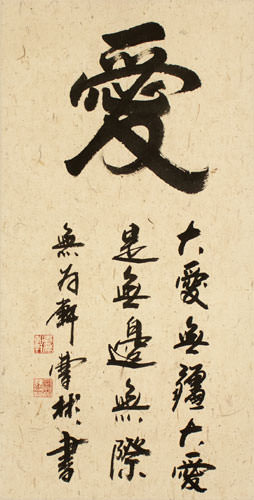 愛
大愛無疆大愛
是無邊無際
無為軒曹彬書